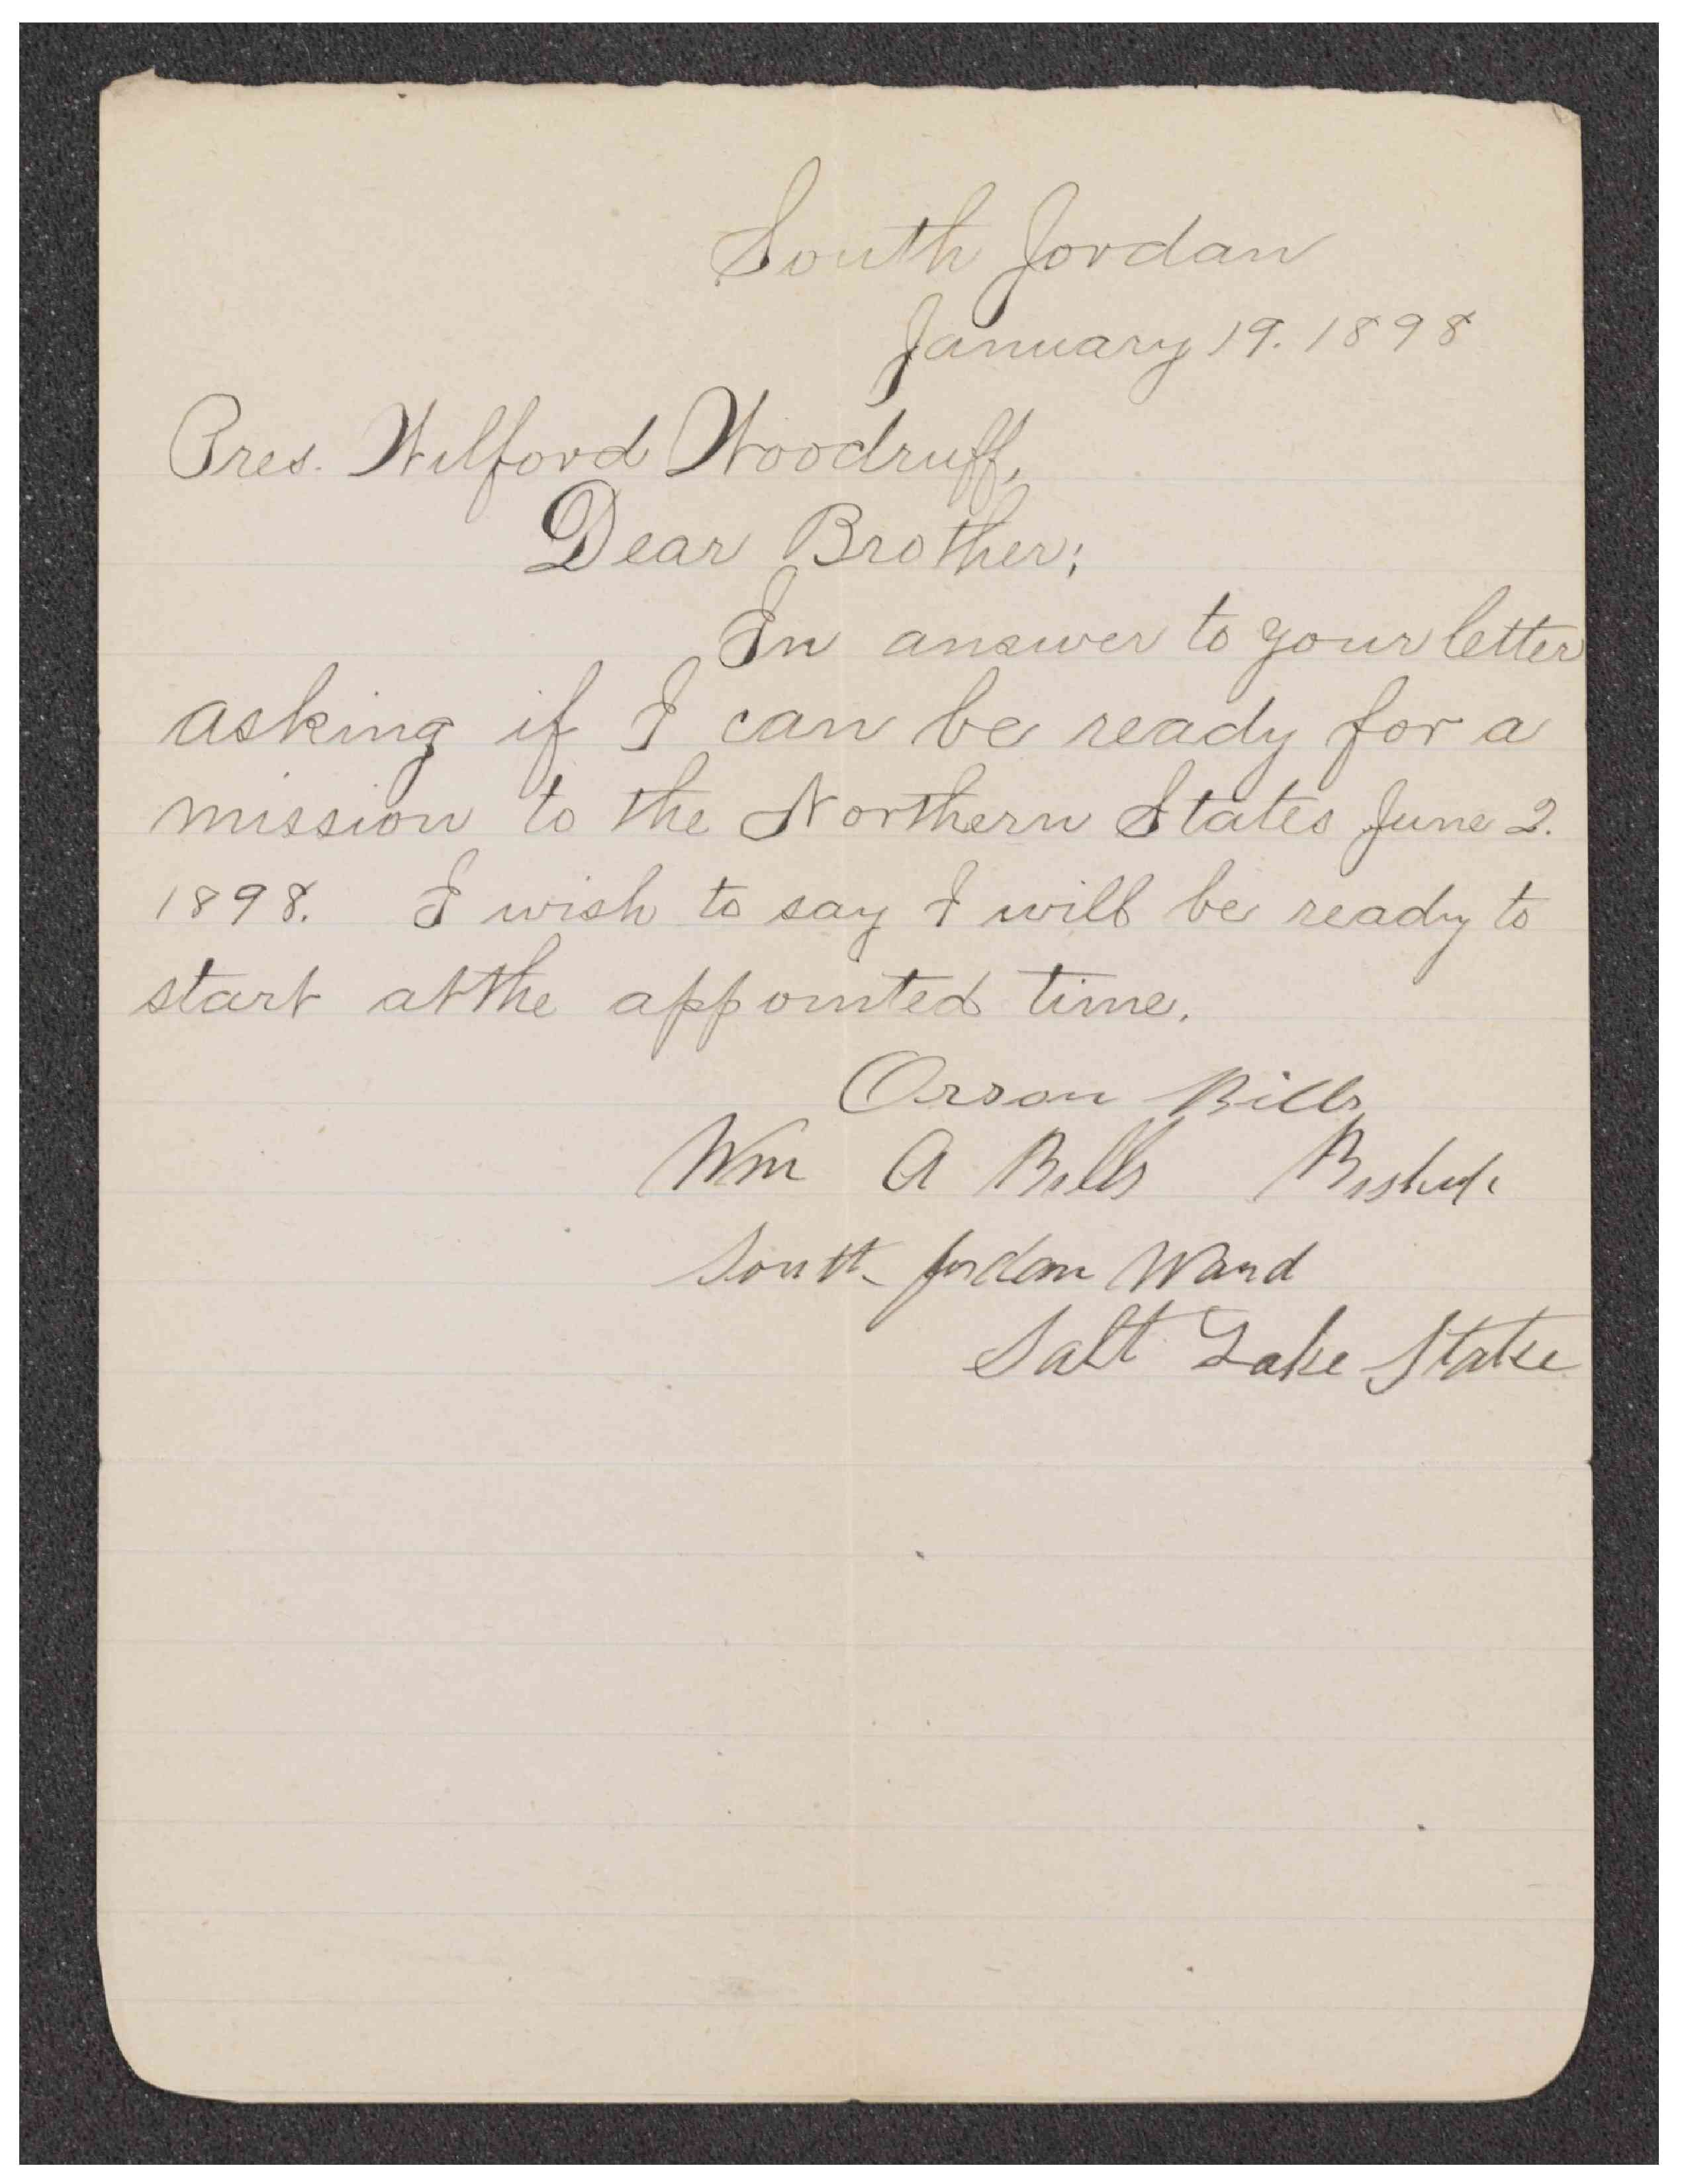 South Jordan
January 19. 1898
Pres. Wilford Woodruff,
Dear Brother;
In answer to your letter
asking if I can be ready for a
mission to the Northern States June 2.
1898. I wish to say I will be ready to
start at the appointed time.
Orson Bills
Wm A Bills Bishop.
South Jordan Ward
Salt Lake Stake